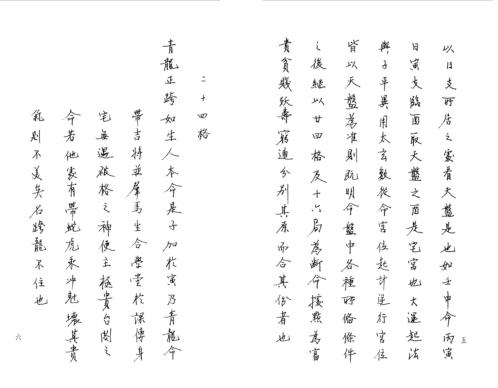 以日支所居之處看天盤是也如壬申命丙寅
日寅支臨酉取天盤之酉是宅宮也大運起法
與子平異用太玄數從命宮位起計逆行宮位
皆以天盤為準則既明命盤中各種所俻條件
之後繼以廿四格及十六局為斷命接點為富
貴貧賤殀壽窮通分別其原而合其份者也
五
二十四格
青龍正跨如生人本命是子加於寅乃青龍命
帶吉將並羣馬生合學堂於課傳身
宅無過破格之神使主極貴台閣之
命若他處有帶蛇虎乘冲尅壞其貴
氣則不美矣名跨龍不住也
六